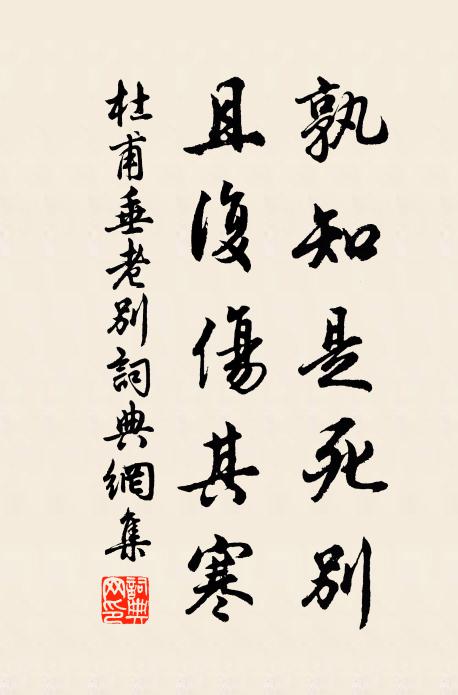 孰知是死别
且復傷其寒
杜甫垂老别詞典網集
詞典網印